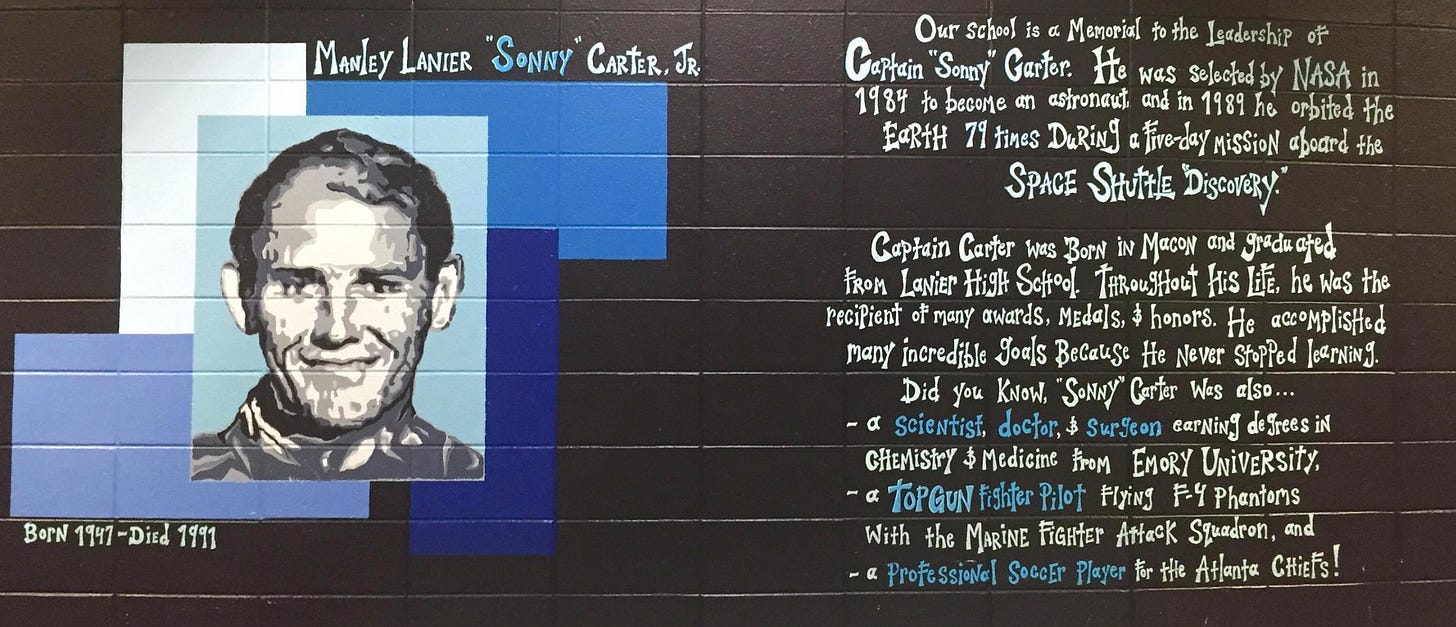 Manley Lanier "Sonny" Carter, Jr.
Born 1947 - Died 1991
Our school is a Memorial to the Leadership of
Captain "Sonny" Carter. He was selected by NASA in
1984 to become an astronaut, and in 1989 he orbited the
Earth 79 times During a five-day mission aboard the
Space Shuttle "Discovery."
Captain Carter was Born in Macon and graduated
from Lanier High School. Throughout His Life, he was the
recipient of many awards, Medals, & honors. He accomplished
many incredible goals Because He Never Stopped learning.
Did you Know, "Sonny" Carter Was also...
- a scientist, doctor, & surgeon earning degrees in
Chemistry & Medicine from Emory University,
- a TOPGUN fighter Pilot flying F-4 Phantoms
With the Marine Fighter Attack Squadron, and
- a Professional Soccer Player for the Atlanta Chiefs!